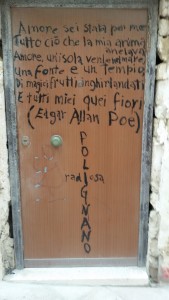 Amore sei stata per me
Tutto ciò che la mia anima
anelava
Amore, un'isola verde nel mare
una fonte e un tempio
Di magici frutti inghirlandati
E tutti miei quei fiori
(Edgar Allan Poe)
POLIGNANO
radiosa